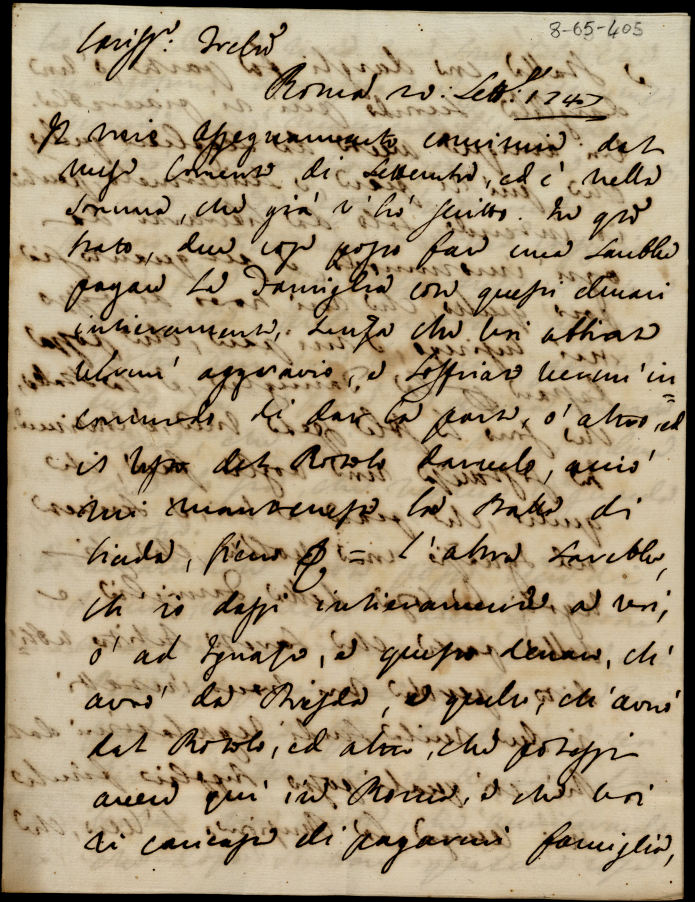 8-65-405
Cariss.º Fretlo
Roma 20: Sett.e 1747
Il mio assegnamento comincia dal
mese corrente di Settembre, ed è nella
somma, che già v'hò scritto. In qto
stato, due cose posso fare una sarebbe
pagare la famiglia con questi denari
intieramente, senza che voi abbiate
verun' aggravio, e soffriate verun' in=
comodo di dare la parte, ò altro, ed
il del Rotolo darvelo, acciò
mi manteneste la
= l'altra sarebbe,
ch'io dassi intieramente a voi,
ò ad Ignazio, e questo denaro, ch'
avrò da , e quello, ch'avrò
dal Rotolo, ed altro, che potessi
avere quì in Roma, e che voi
vi caricaste di pagarmi famiglia,